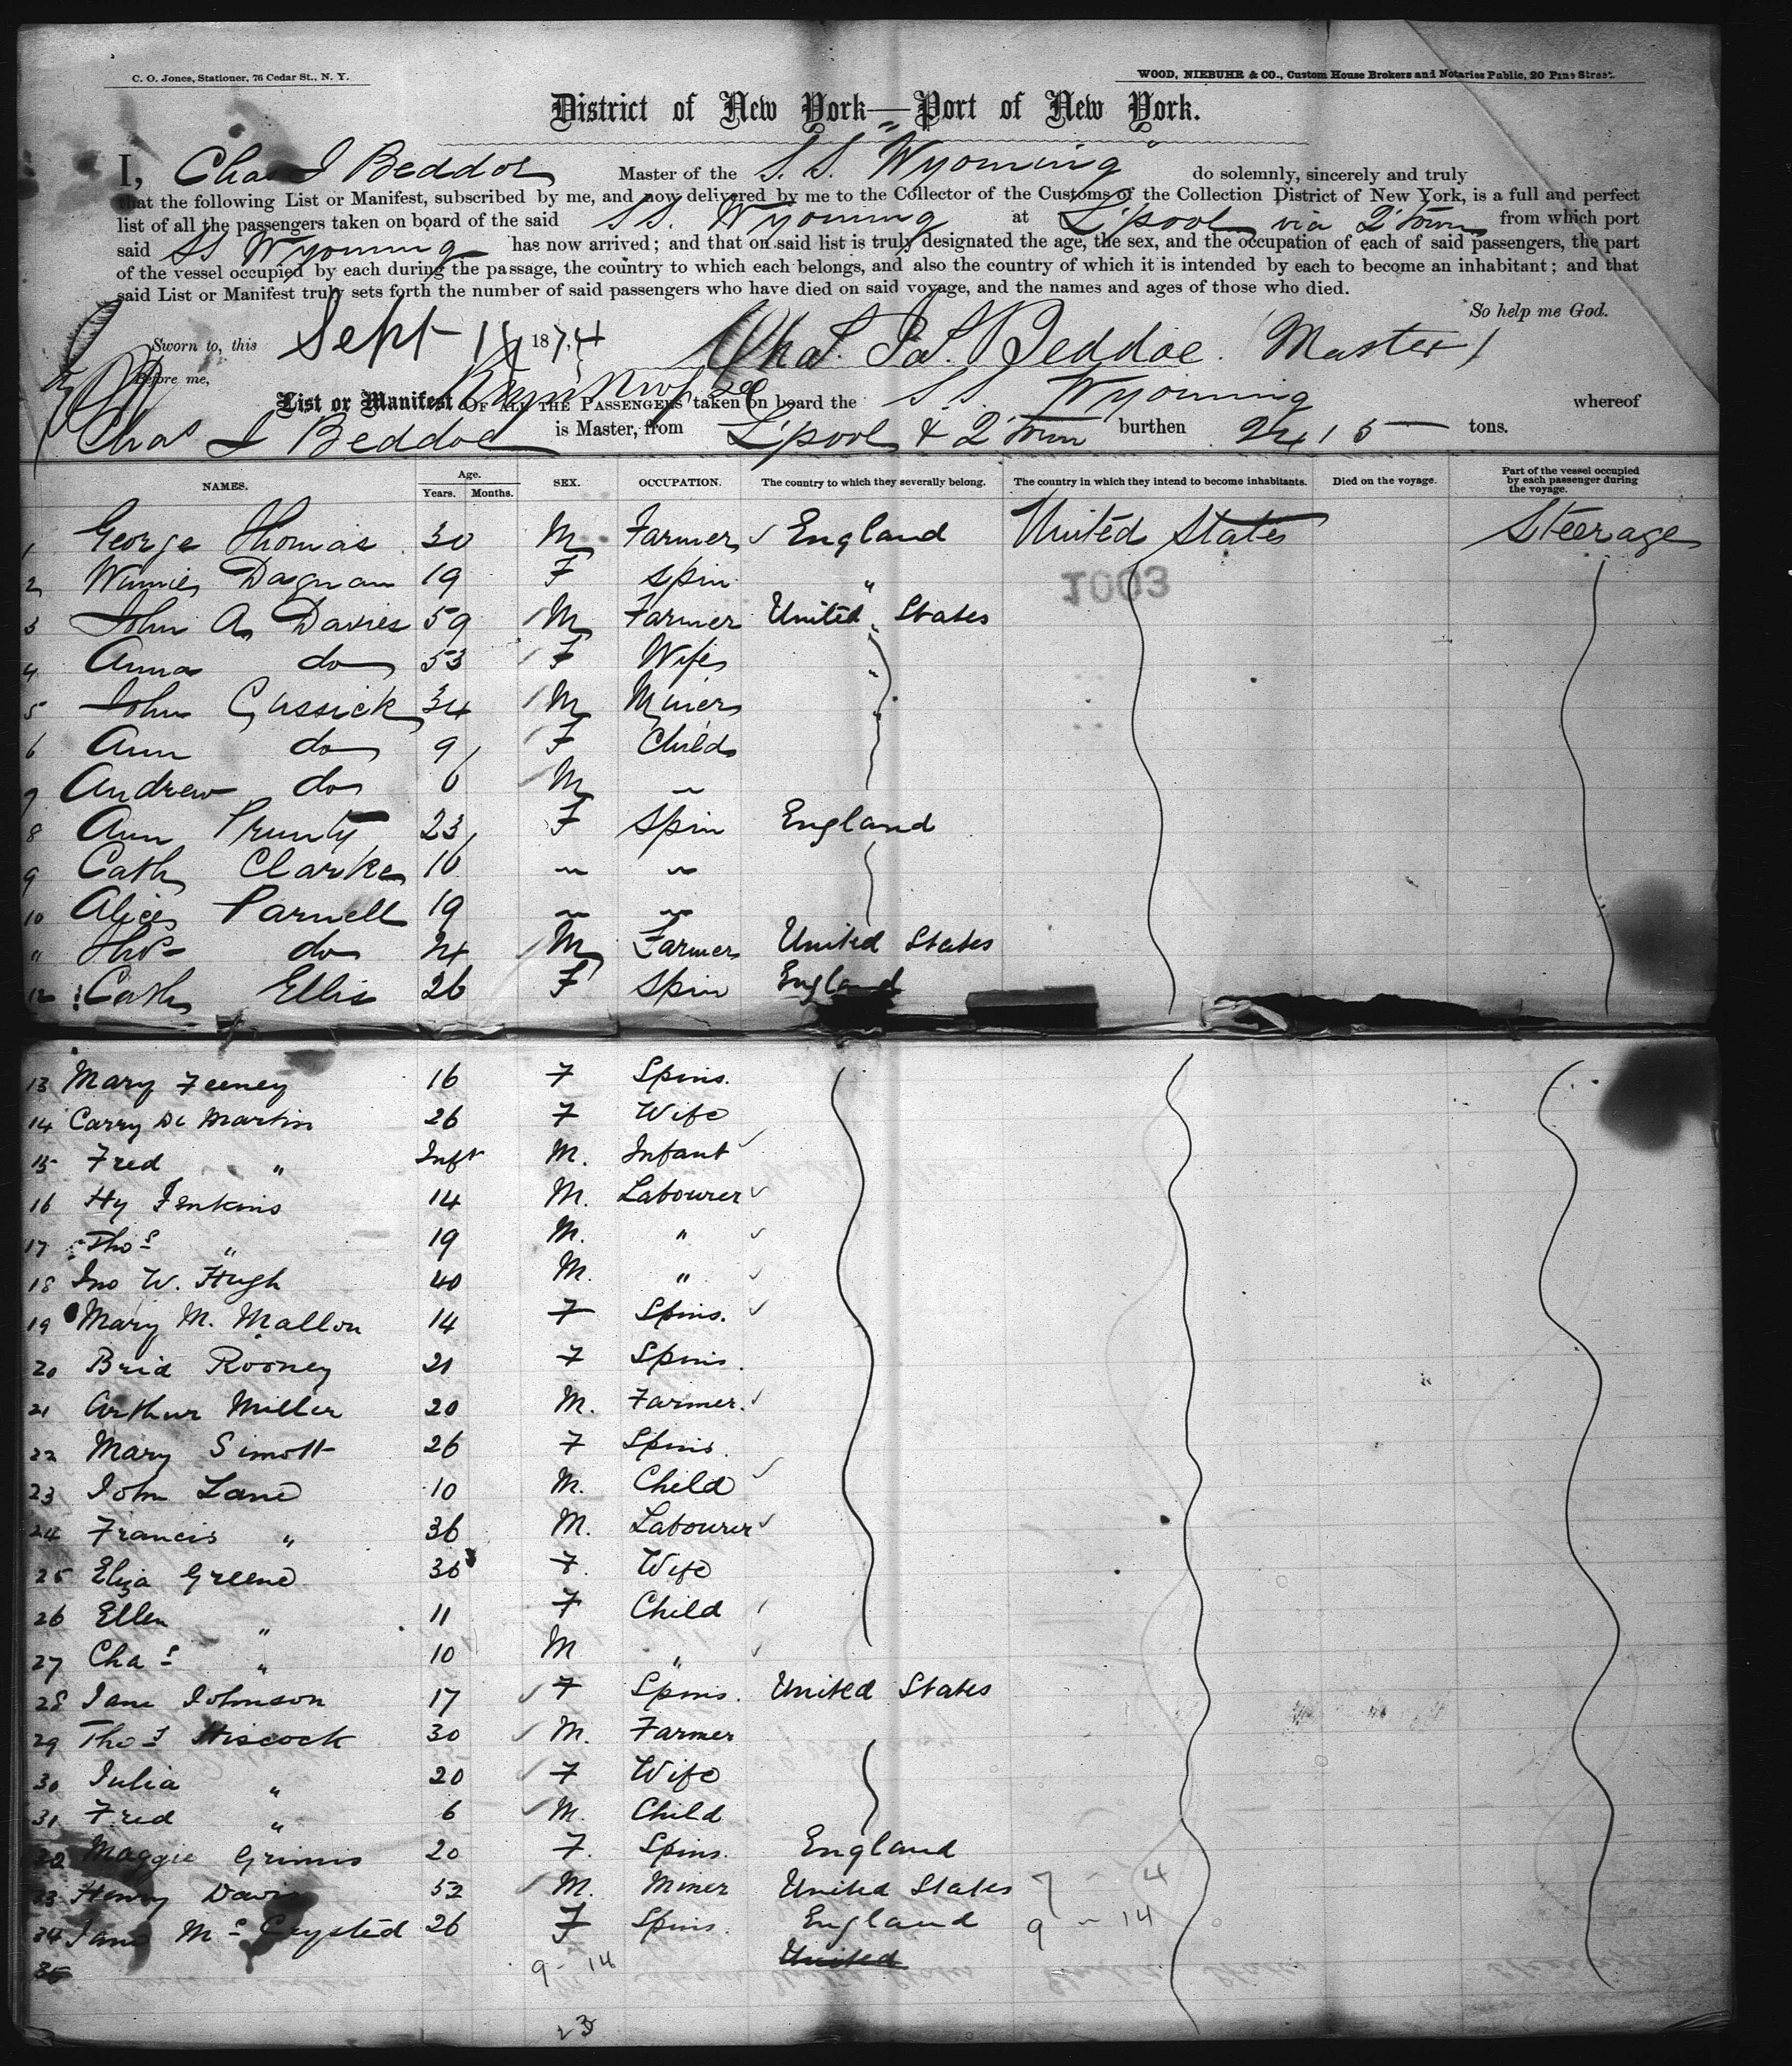 C. O. Jones, Stationer, 76 Cedar St., N. Y.
WOOD, NIEBUHR & CO., Custom House Brokers and Notaries Public, 20 Pine Street.
District of New York—Port of New York.
I, Chas J Beddoe Master of the S. S. "Wyoming" do solemnly, sincerely and truly
that the following List or Manifest, subscribed by me, and now delivered by me to the Collector of the Customs of the Collection District of New York, is a full and perfect
list of all the passengers taken on board of the said SS. Wyoming at L'pool via Q'Town from which port
said SS Wyoming has now arrived; and that on said list is truly designated the age, the sex, and the occupation of each of said passengers, the part
of the vessel occupied by each during the passage, the country to which each belongs, and also the country of which it is intended by each to become an inhabitant; and that
said List or Manifest truly sets forth the number of said passengers who have died on said voyage, and the names and ages of those who died.
So help me God.
Sworn to, this Sept 1874 Chas. Beddoe. (Master)
Before me,
List or Manifest OF ALL THE PASSENGERS taken on board the S S Wyoming whereof
Chas J Beddoe is Master, from L'pool & Q'Town burthen 2415 tons.
NAMES. Age. Years. Months. SEX. OCCUPATION. The country to which they severally belong. The country in which they intend to become inhabitants. Died on the voyage. Part of the vessel occupied by each passenger during the voyage.
1 George Thomas 30 M Farmer England United States Steerage
2 Winnie Dagnan 19 F Spin "
1003
3 John A Davies 59 M Farmer United States
4 Anna do 53 F Wife "
5 John Cussick 34 M Miner "
6 Ann do 9 F Child
7 Andrew do 6 M "
8 Ann Prunty 23 F Spin England
9 Cath Clarke 16 " "
10 Alice Parnell 19 " "
11 Thos do 24 M Farmer United States
12 Cath Ellis 26 F Spin England
13 Mary Feeney 16 F Spins.
14 Carry De Martin 26 F Wife
15 Fred " Inft M. Infant
16 Hy Jenkins 14 M. Labourer
17 Thos " 19 M. "
18 Jno W. Hugh 40 M. "
19 Mary M. Mallon 14 F Spins.
20 Brid Rooney 21 F Spins.
21 Arthur Miller 20 M. Farmer.
22 Mary Simott 26 F Spins.
23 John Lane 10 M. Child
24 Francis " 36 M. Labourer
25 Eliza Greene 36 F. Wife
26 Ellen " 11 F Child
27 Chas " 10 M "
28 Jane Johnson 17 F Spins. United States
29 Thos Hiscock 30 M. Farmer
30 Julia " 20 F Wife
31 Fred " 6 M. Child
32 Maggie Grimis 20 F. Spins. England
33 Henry Davis 52 M. Miner United States 7 - 4
34 Jane Mc 26 F Spins. England 9 - 14
35 9 - 14 United
23